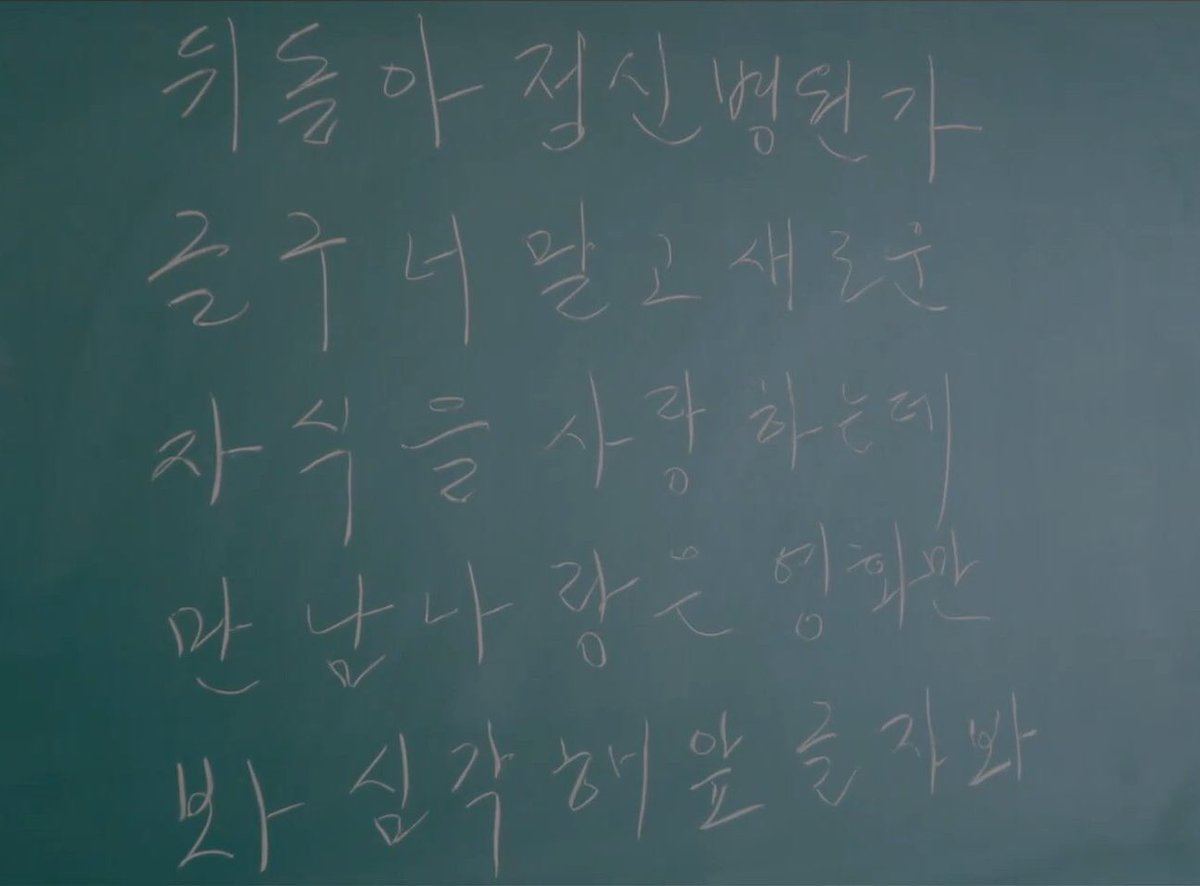 뒤돌아 정신병원가
글구너 말고새로운
자식을 사랑하는데
만남나랑은 영화만
봐 심각해앞글자봐